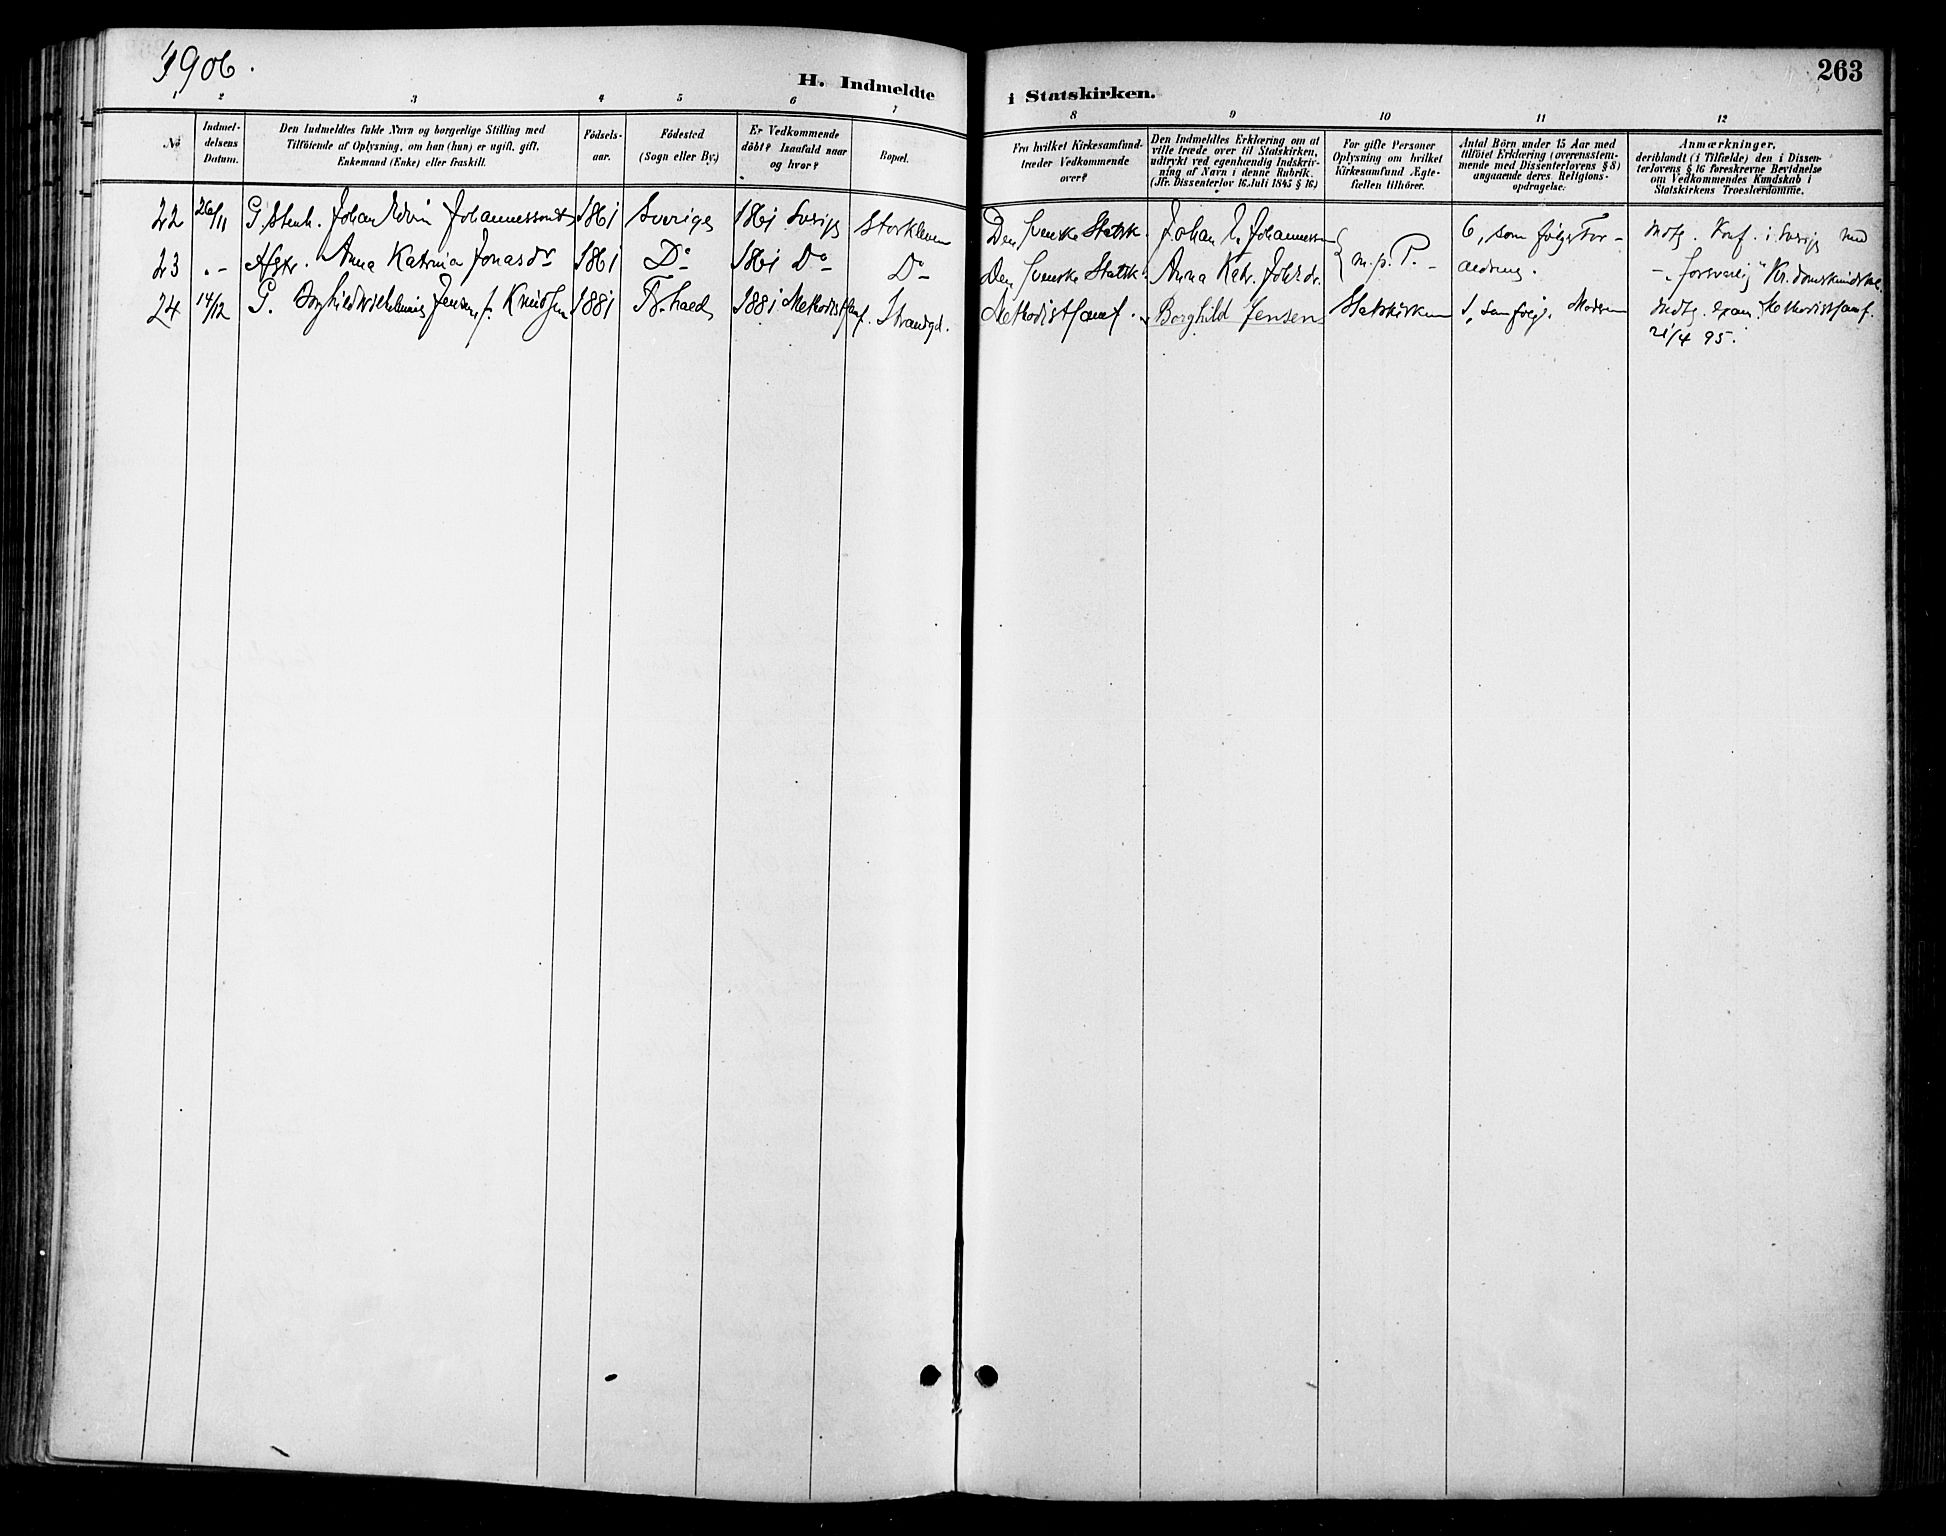 1906.
H. Indmeldte i Statskirken.
263
1 2 3 4 5 6 7 8 9 10 11 12
No
Indmel-
delsens
Datum.
Den Indmeldtes fulde Navn og borgerlige Stilling med
Tilföiende af Oplysning, om han (hun) er ugift, gift,
Enkemand (Enke) eller fraskilt.
Födsels-
aar.
Födested
(Sogn eller By.)
Er Vedkommende
döbt? Isaafald naar
og hvor?
Bopæl.
Fra hvilket Kirkesamfund
træder Vedkommende
over?
Den Indmeldtes Erklæring om at
ville træde over til Statskirken,
udtrykt ved egenhændig Indskriv-
ning af Navn i denne Rubrik.
(Jfr. Dissenterlov 16 Juli 1845 § 16)
For gifte Personer
Oplysning om hvilket
Kirkesamfund Ægte-
fællen tilhörer.
Antal Börn under 15 Aar med
tilföiet Erklæring (overensstem-
mende med Dissenterlovens § 8)
angaaende deres Religions-
opdragelse.
Anmærkninger,
deriblandt (i Tilfælde) den i Dissen-
terlovens § 16 foreskrevne Bevidnelse
om Vedkommendes Kundskab i
Statskirkens Troeslærdomme.
22 26/11 G. Stenh. Johan Edvin Johannesson 1861 Sverige 1861 Sverige Storkleven Den svenske Statsk. Johan E Johannesson m. p. P. 6, som følger For-
23 " - Hstr. Anna Katrina Jonasdr 1861 Do 1861 Do Do Den svenske Statsk. Anna Katr. ældrene. Konf. i Sverige med
- "forsvarlig" Kr.domskundskab.
24 14/12 G. Borghild Wilhelmine Jensen f. Knudsen 1881 Fr.hald 1881 Methodistsamf. Strandgd. Methodistsamf. Borghild Jensen Statskirken 1, som følg. Moderen exam. Methodistsamf.
21/4 95.